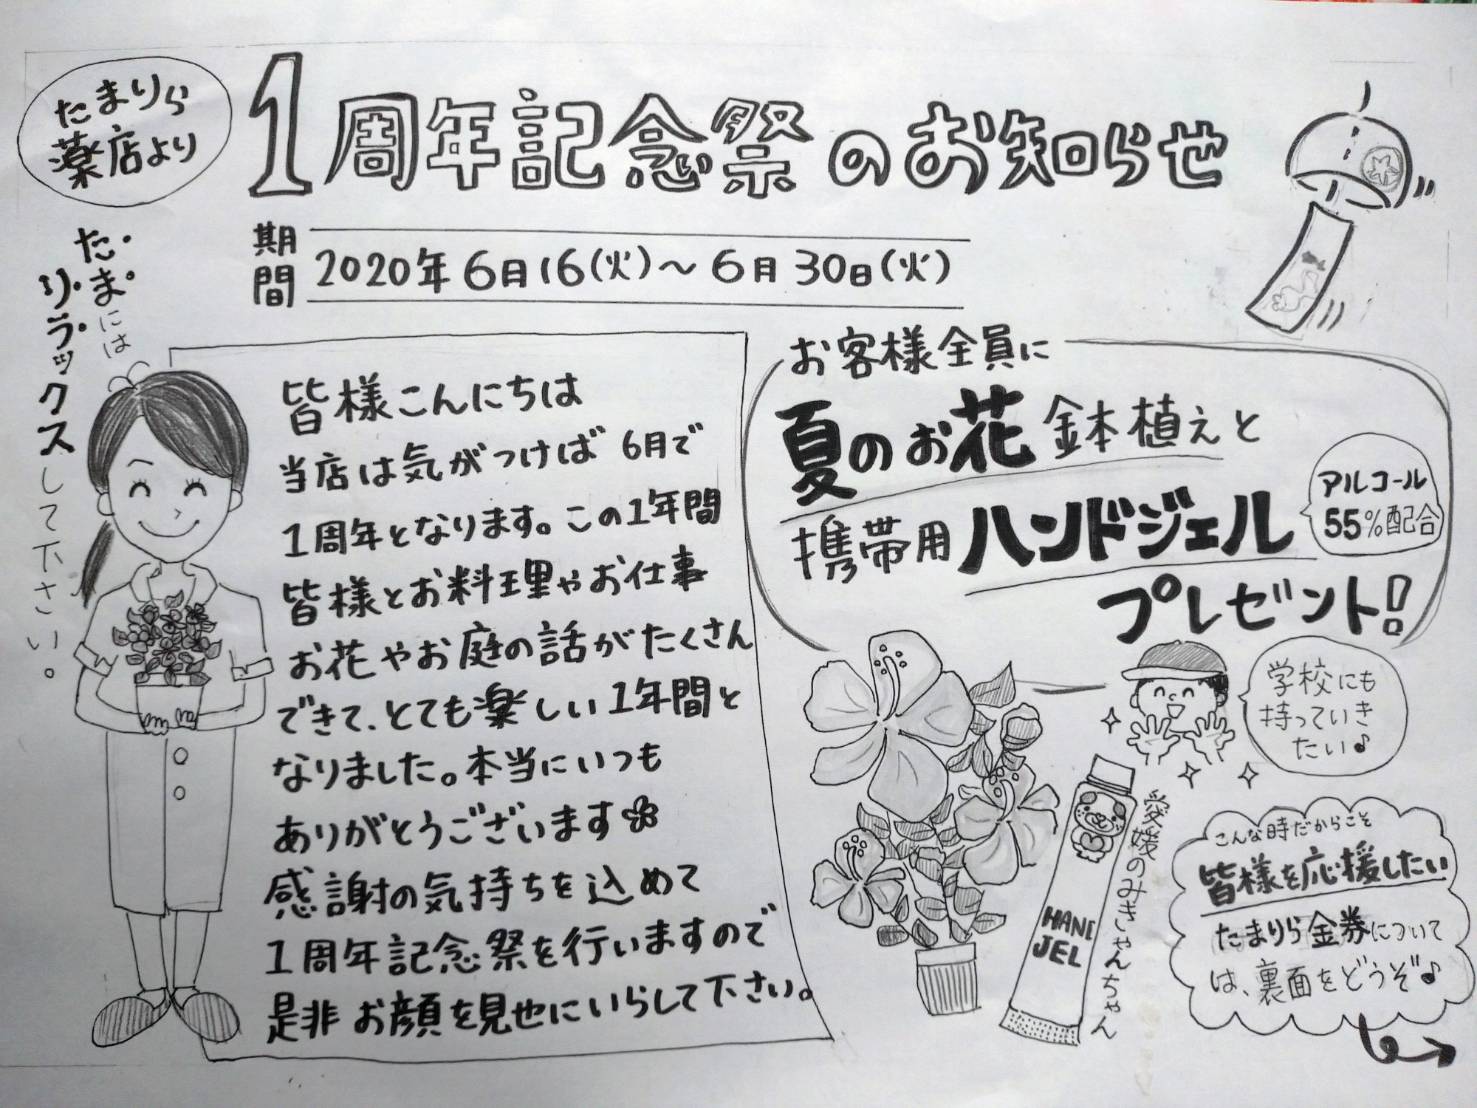 たまりら
薬店より
1周年記念祭のお知らせ
期間
2020年6月16(火)～6月30日(火)
たまには
リラックスして下さい。
皆様こんにちは
当店は気がつけば6月で
1周年となります。この1年間
皆様とお料理やお仕事
お花やお庭の話がたくさん
できて、とても楽しい1年間と
なりました。本当にいつも
ありがとうございます
感謝の気持ちを込めて
1周年記念祭を行いますので
是非お顔を見せにいらして下さい。
お客様全員に
夏のお花鉢植えと
携帯用ハンドジェル
アルコール
55%配合
プレゼント!
学校にも
持っていき
たい♪
愛媛のみきゃんちゃん
HAND
JEL
こんな時だからこそ
皆様を応援したい
たまりら金券について
は、裏面をどうぞ♪